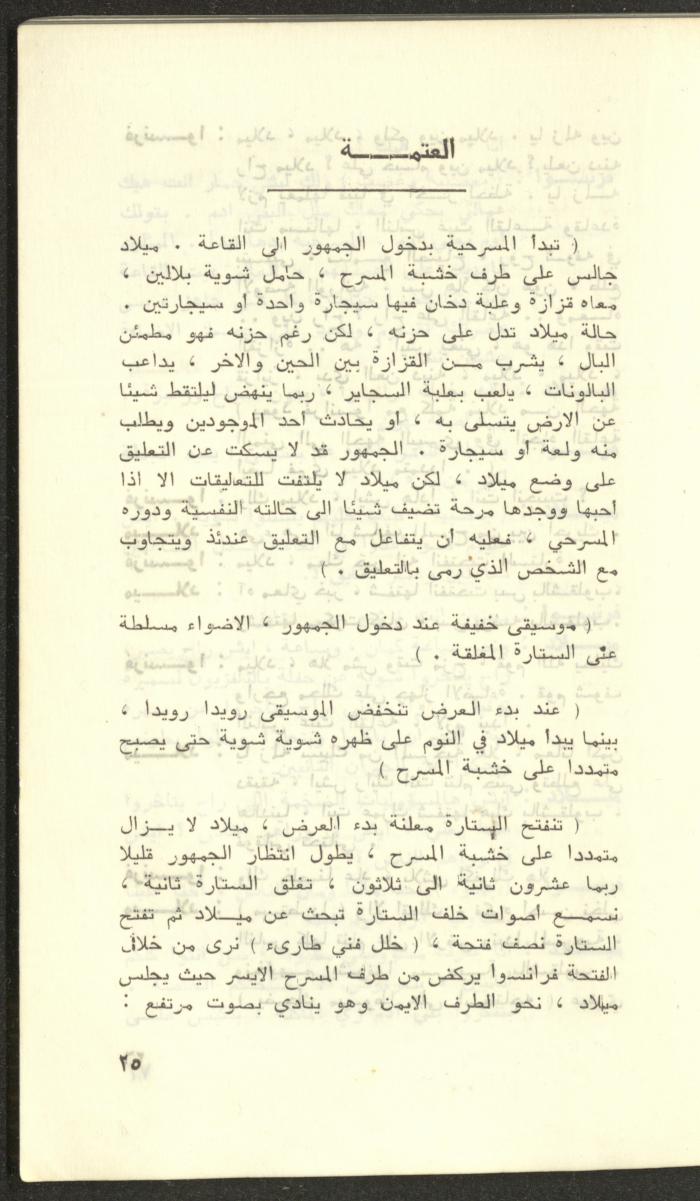 العتمـــــة
( تبدأ المسرحية بدخول الجمهور الى القاعة . ميلاد
جالس على طرف خشبة المسرح ، حامل شوية بلالين ،
معاه قزازة وعلبة دخان فيها سيجارة واحدة او سيجارتين .
حالة ميلاد تدل على حزنه ، لكن رغم حزنه فهو مطمئن
البال ، يشرب مـــن القزازة بين الحين والاخر ، يداعب
البالونات ، يلعب بعلبة السجاير ، ربما ينهض ليلتقط شيئا
عن الارض يتسلى به ، أو يحادث أحد الموجودين ويطلب
منه ولعة أو سيجارة . الجمهور قد لا يسكت عن التعليق
على وضع ميلاد ، لكن ميلاد لا يلتفت للتعليقات الا اذا
أحبها ووجدها مرحة تضيف شيئا الى حالته النفسية ودوره
المسرحي ، فعليه أن يتفاعل مع التعليق عندئذ ويتجاوب
مع الشخص الذي رمى بالتعليق . )
( موسيقى خفيفة عند دخول الجمهور ، الاضواء مسلطة
على الستارة المغلقة . )
( عند بدء العرض تنخفض الموسيقى رويدا رويدا ،
بينما يبدأ ميلاد في النوم على ظهره شوية شوية حتى يصبح
متمددا على خشبة المسرح )
( تنفتح الستارة معلنة بدء العرض ، ميلاد لا يـــزال
متمددا على خشبة المسرح ، يطول انتظار الجمهور قليلا
ربما عشرون ثانية الى ثلاثون ، تغلق الستارة ثانية ،
نسمـــع أصوات خلف الستارة تبحث عن ميـــلاد ثم تفتح
الستارة نصف فتحة ، ( خلل فني طارىء ) نرى من خلال
الفتحة فرانسوا يركض من طرف المسرح الايسر حيث يجلس
ميلاد ، نحو الطرف الايمن وهو ينادي بصوت مرتفع :
٢٥